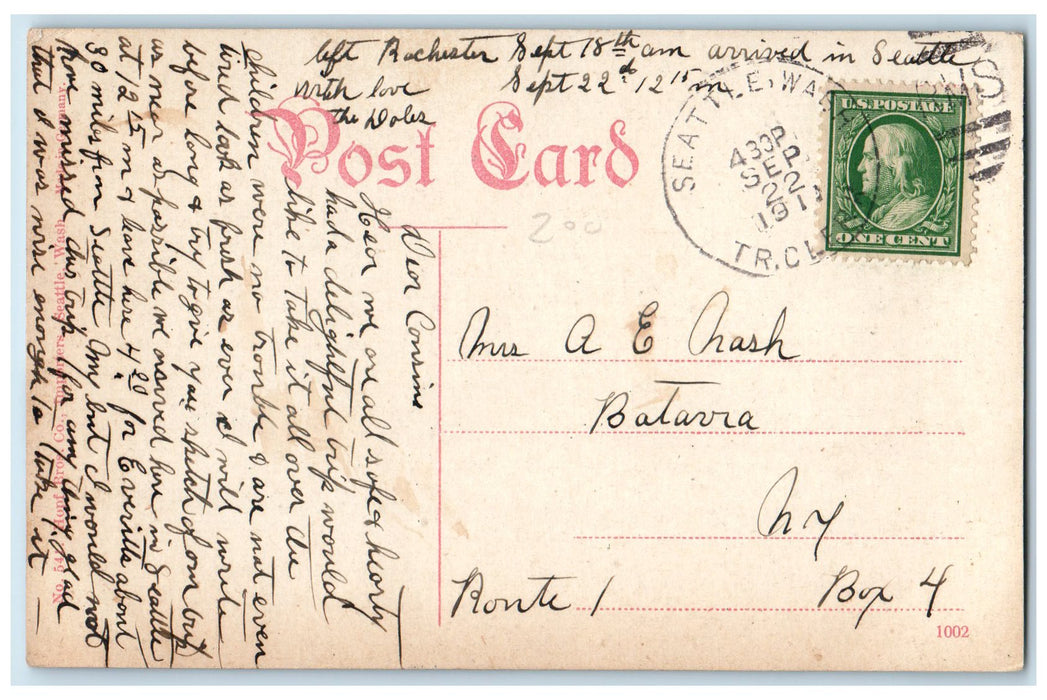 left Rochester Sept 18th am arrived in Seattle
Sept 22d 12 15 m
with love
the Doles
Post Card
SEATTLE, WASH.
4 33 P
SEP
22
1911
TR. CLERK
U.S. POSTAGE
ONE CENT
200
Dear Cousins
Here we are all safe & hearty
had a delightful trip would
like to take it all over the
children were no trouble & are not even
tired look as fresh as ever I will write
before long & try to give you sketch of our trip
as near as possible we arrived here in Seattle
at 12 15 m & leave here 4 20 for Everitts about
30 miles from Seattle My but I would not
have missed this trip for any thing glad
that I was wise enough to take it
Mrs A E Nash
Batavia
N Y
Route 1 Box 4
1002
Bros. Co., Seattle, Wash.